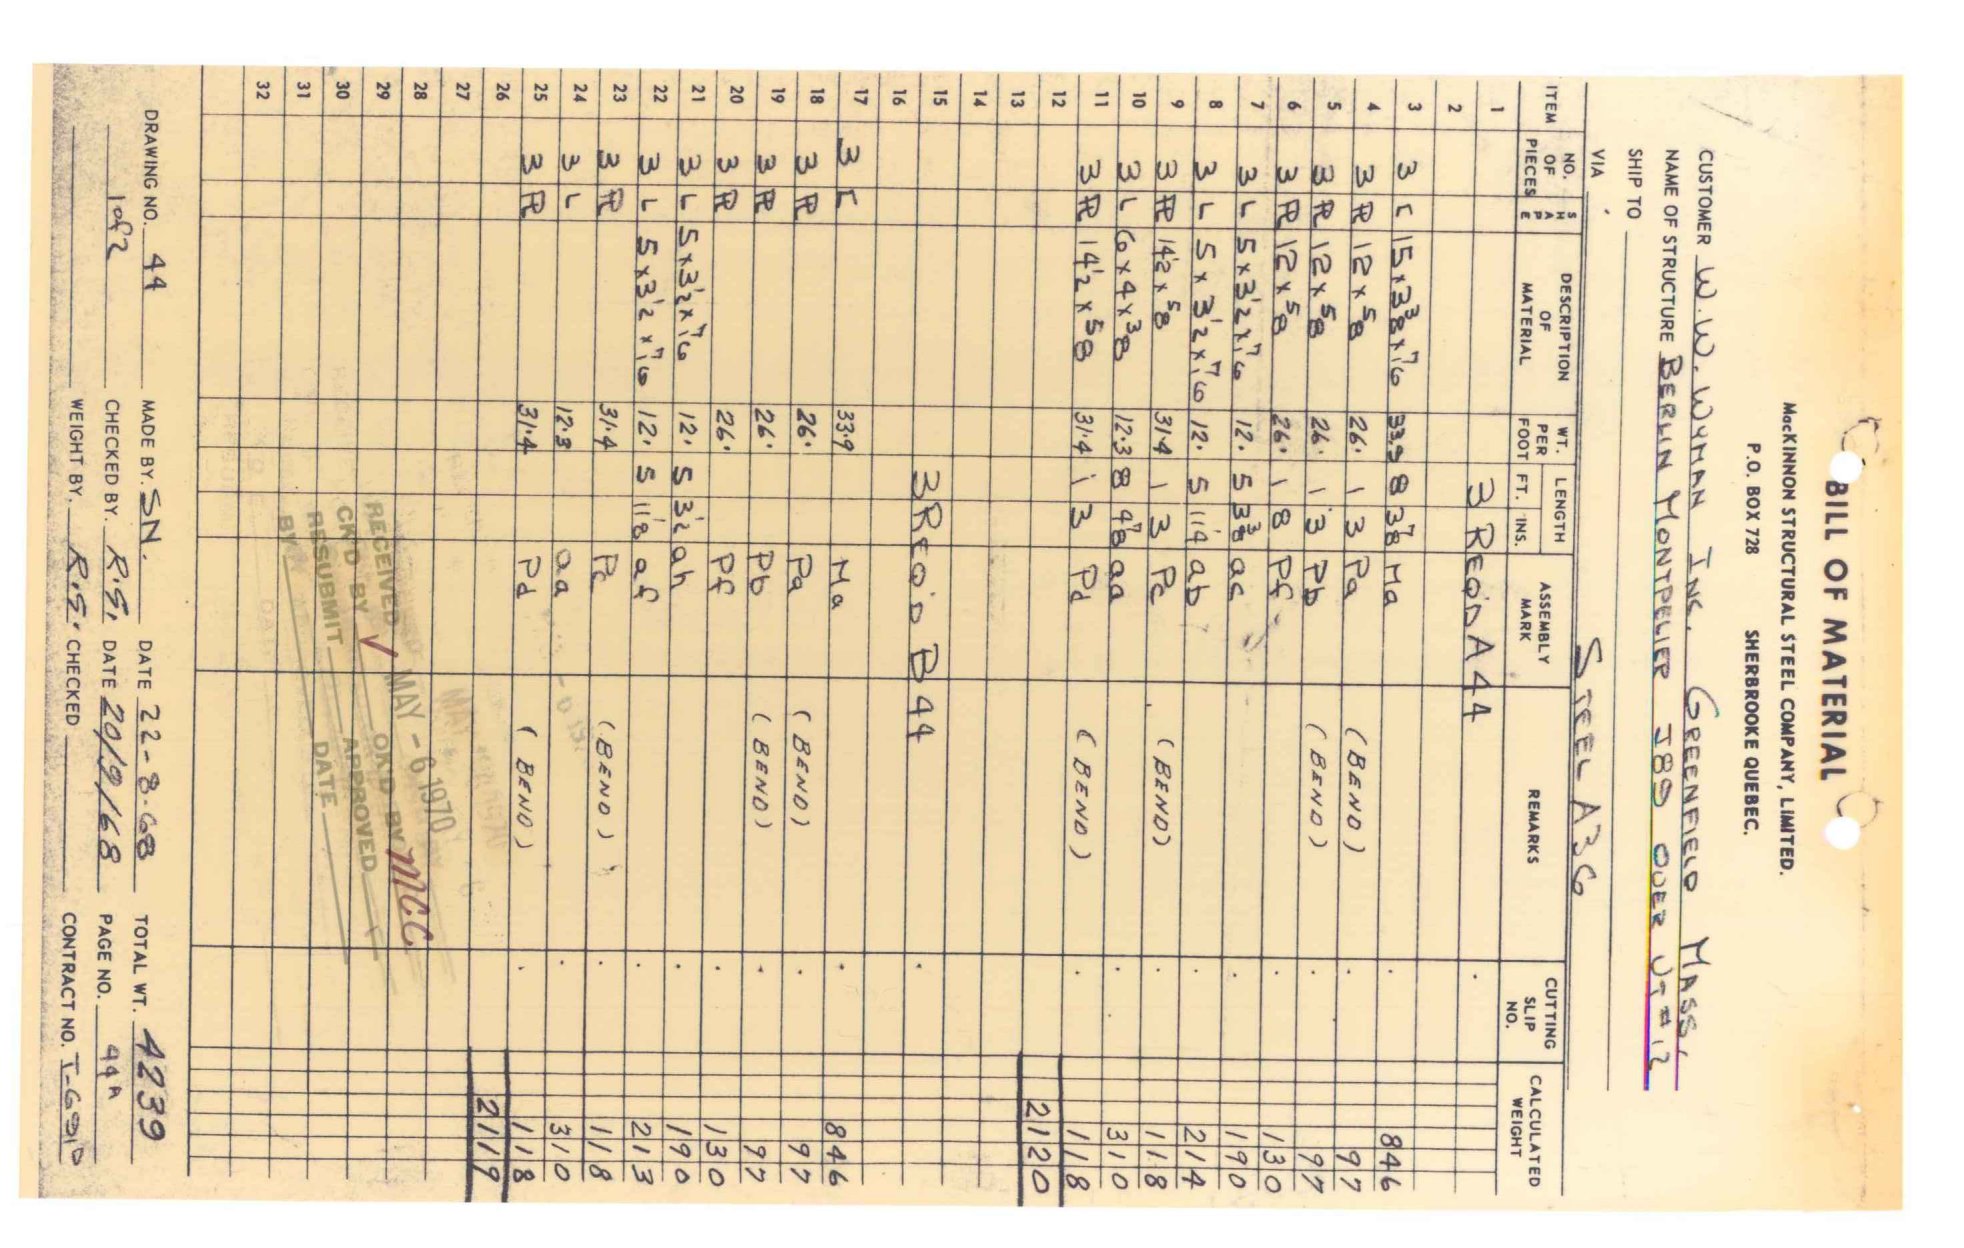 BILL OF MATERIAL
MacKINNON STRUCTURAL STEEL COMPANY, LIMITED.
P.O. BOX 728 SHERBROOKE QUEBEC.
CUSTOMER W.W. WYMAN INC. GREENFIELD MASS,
NAME OF STRUCTURE BERLIN MONTPELIER I89 OVER VT #12
SHIP TO
VIA STEEL A36
ITEM NO. OF PIECES SHAPE DESCRIPTION OF MATERIAL WT. PER FOOT LENGTH FT. INS. ASSEMBLY MARK REMARKS CUTTING SLIP NO. CALCULATED WEIGHT
1 3 REQ'D A44
2
3 3 [ 15x3 3/8x7/16 33.9 8 3 7/8 Ma 846
4 3 PL 12x5/8 26. 1 3 Pa (BEND) 97
5 3 PL 12x5/8 26. 1 3 Pb (BEND) 97
6 3 PL 12x5/8 26. 1 8 Pf 130
7 3 L 5x3 1/2x7/16 12. 5 3 3/8 ac 190
8 3 L 5x3 1/2x7/16 12. 5 11 1/4 ab 214
9 3 PL 14 1/2x5/8 31.4 1 3 Pc (BEND) 118
10 3 L 6x4x3/8 12.3 8 4 7/8 aa 310
11 3 PL 14 1/2x5/8 31.4 1 3 Pd (BEND) 118
12 2120
13
14
15 3 REQ'D B44
16
17 3 [ 33.9 Ma 846
18 3 PL 26. Pa (BEND) 97
19 3 PL 26. Pb (BEND) 97
20 3 PL 26. Pf 130
21 3 L 5x3 1/2x7/16 12. 5 3 1/2 ah 190
22 3 L 5x3 1/2x7/16 12. 5 11 1/8 af 213
23 3 PL 31.4 Pc (BEND) 118
24 3 L 12.3 aa 310
25 3 PL 31.4 Pd (BEND) 118
26 2119
27
28
29
30
31
32
RECEIVED MAY - 6 1970
CK'D BY OK'D BY MCC
RESUBMIT APPROVED
BY DATE
DRAWING NO. 44 MADE BY. SN. DATE 22-8-68 TOTAL WT. 4239
1 of 2 CHECKED BY. R.S. DATE 20/9/68 PAGE NO. 44A
WEIGHT BY. R.S. CHECKED CONTRACT NO.